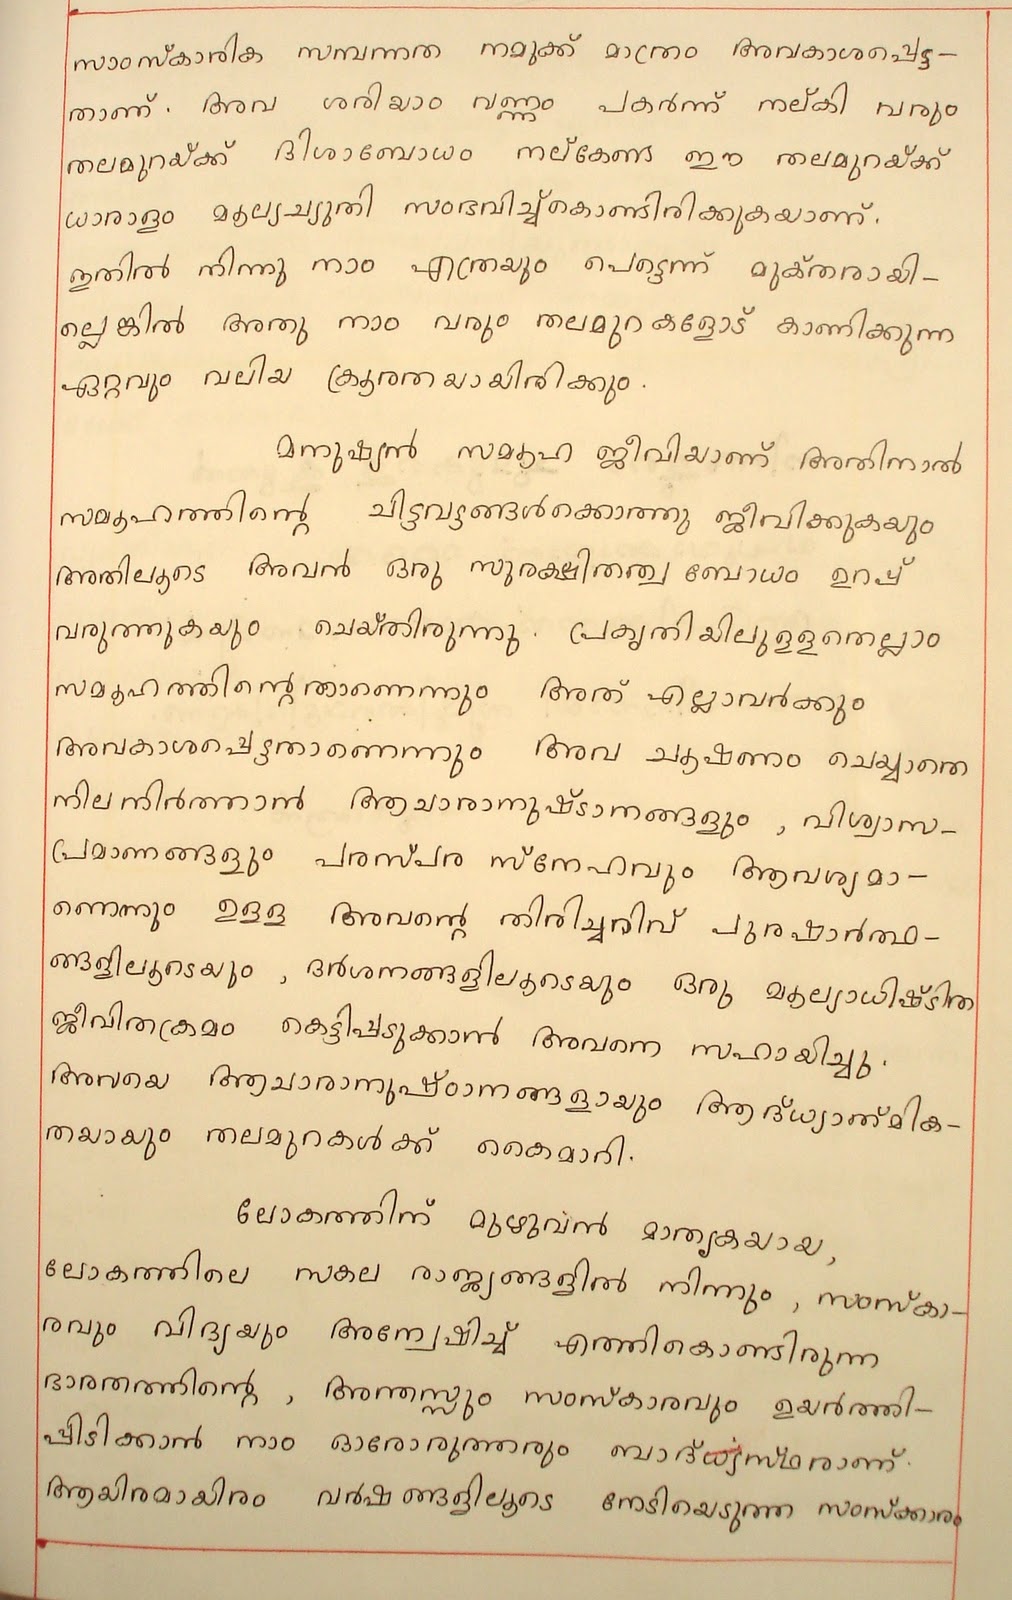 സാംസ്കാരിക സമ്പന്നത നമുക്ക് മാത്രം അവകാശപ്പെട്ട-
താണ്. അവ ശരിയാം വണ്ണം പകർന്ന് നല്കി വരും
തലമുറയ്ക്ക് ദിശാബോധം നല്കേണ്ട ഈ തലമുറയ്ക്ക്
ധാരാളം മൂല്യച്യുതി സംഭവിച്ച്കൊണ്ടിരിക്കുകയാണ്.
ഇതിൽ നിന്നു നാം എത്രയും പെട്ടെന്ന് മുക്തരായി-
ല്ലെങ്കിൽ അതു നാം വരും തലമുറകളോട് കാണിക്കുന്ന
ഏറ്റവും വലിയ ക്രൂരതയായിരിക്കും.
മനുഷ്യൻ സമൂഹ ജീവിയാണ് അതിനാൽ
സമൂഹത്തിന്റെ ചിട്ടവട്ടങ്ങൾക്കൊത്തു ജീവിക്കുകയും
അതിലൂടെ അവൻ ഒരു സുരക്ഷിതത്വ ബോധം ഉറപ്പ്
വരുത്തുകയും ചെയ്തിരുന്നു. പ്രകൃതിയിലുള്ളതെല്ലാം
സമൂഹത്തിന്റെതാണെന്നും അത് എല്ലാവർക്കും
അവകാശപ്പെട്ടതാണെന്നും അവ ചൂഷണം ചെയ്യാതെ
നിലനിർത്താൻ ആചാരാനുഷ്ടാനങ്ങളും , വിശ്വാസ-
പ്രമാണങ്ങളും പരസ്പര സ്നേഹവും ആവശ്യമാ-
ണെന്നും ഉള്ള അവന്റെ തിരിച്ചറിവ് പുരഷാർത്ഥ-
ങ്ങളിലൂടെയും , ദർശനങ്ങളിലൂടെയും ഒരു മൂല്യാധിഷ്ടിത
ജീവിതക്രമം കെട്ടിപ്പടുക്കാൻ അവനെ സഹായിച്ചു.
അവയെ ആചാരാനുഷ്ഠാനങ്ങളായും ആദ്ധ്യാത്മിക-
തയായും തലമുറകൾക്ക് കൈമാറി.
ലോകത്തിന് മുഴുവൻ മാതൃകയായ,
ലോകത്തിലെ സകല രാജ്യങ്ങളിൽ നിന്നും , സംസ്കാ-
രവും വിദ്യയും അന്വേഷിച്ച് എത്തികൊണ്ടിരുന്ന
ഭാരതത്തിന്റെ , അന്തസ്സും സംസ്കാരവും ഉയർത്തി-
പ്പിടിക്കാൻ നാം ഓരോരുത്തരും ബാദ്ധ്യസ്ഥരാണ്.
ആയിരമായിരം വർഷങ്ങളിലൂടെ നേടിയെടുത്ത സംസ്ക്കാരം